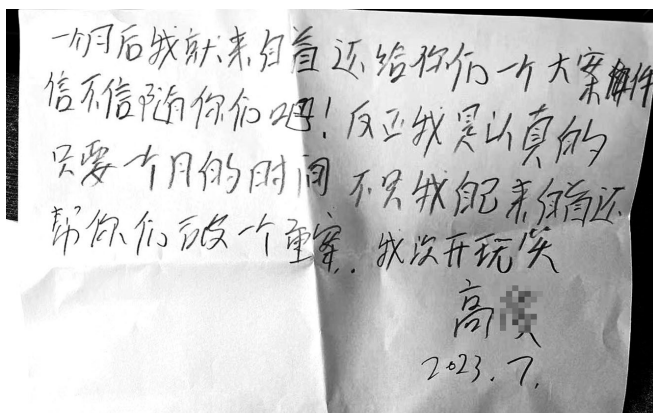 一个月后我就来自首还给你们一个大案件
信不信随你们吧！反正我是认真的
只要一个月的时间 不只我自己来自首还
帮你们破一个重案．我没开玩笑
高
2023.7.